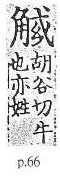 胡谷切牛
也亦姓
p.66